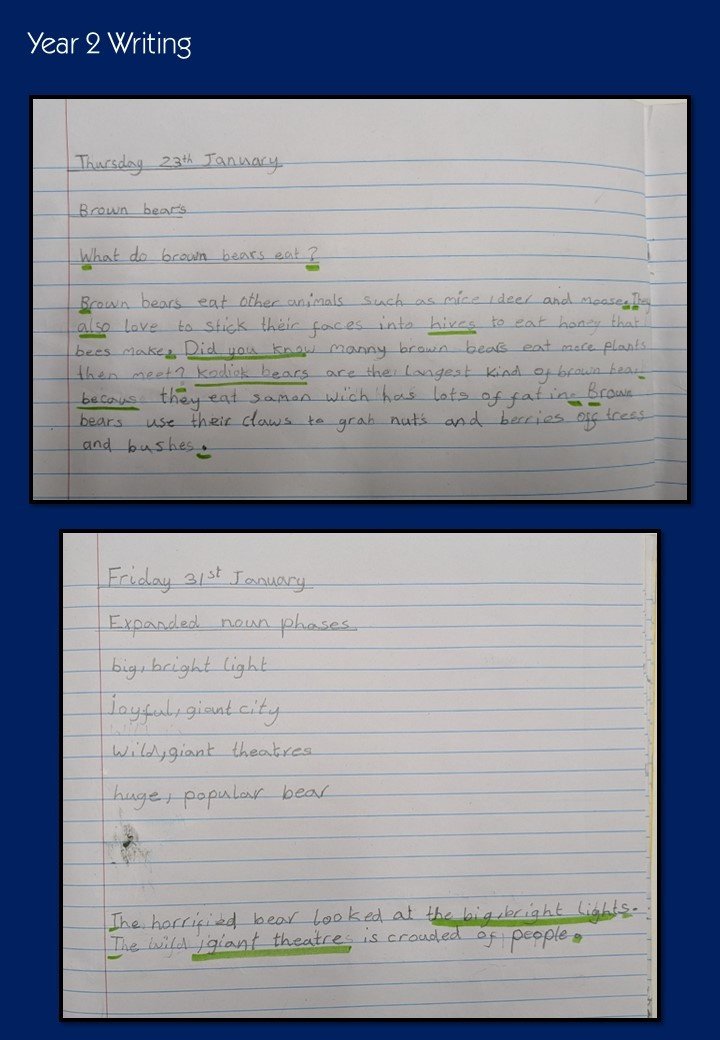 Year 2 Writing
Thursday 23th January
Brown bears
What do brown bears eat?
Brown bears eat other animals such as mice, deer and moose. They
also love to stick their faces into hives to eat honey that
bees make. Did you know manny brown bears eat more plants
then meet? Kodick bears are the largest kind of brown bear
becaus they eat samon wich has lots of fat in. Brown
bears use their claws to grab nuts and berries off trees
and bushes.
Friday 31st January
Expanded noun phases
big, bright light
Joyful, giant city
Wild, giant theatres
huge, popular bear
The horrified bear looked at the big, bright lights.
The wild, giant theatre is crouded of people.